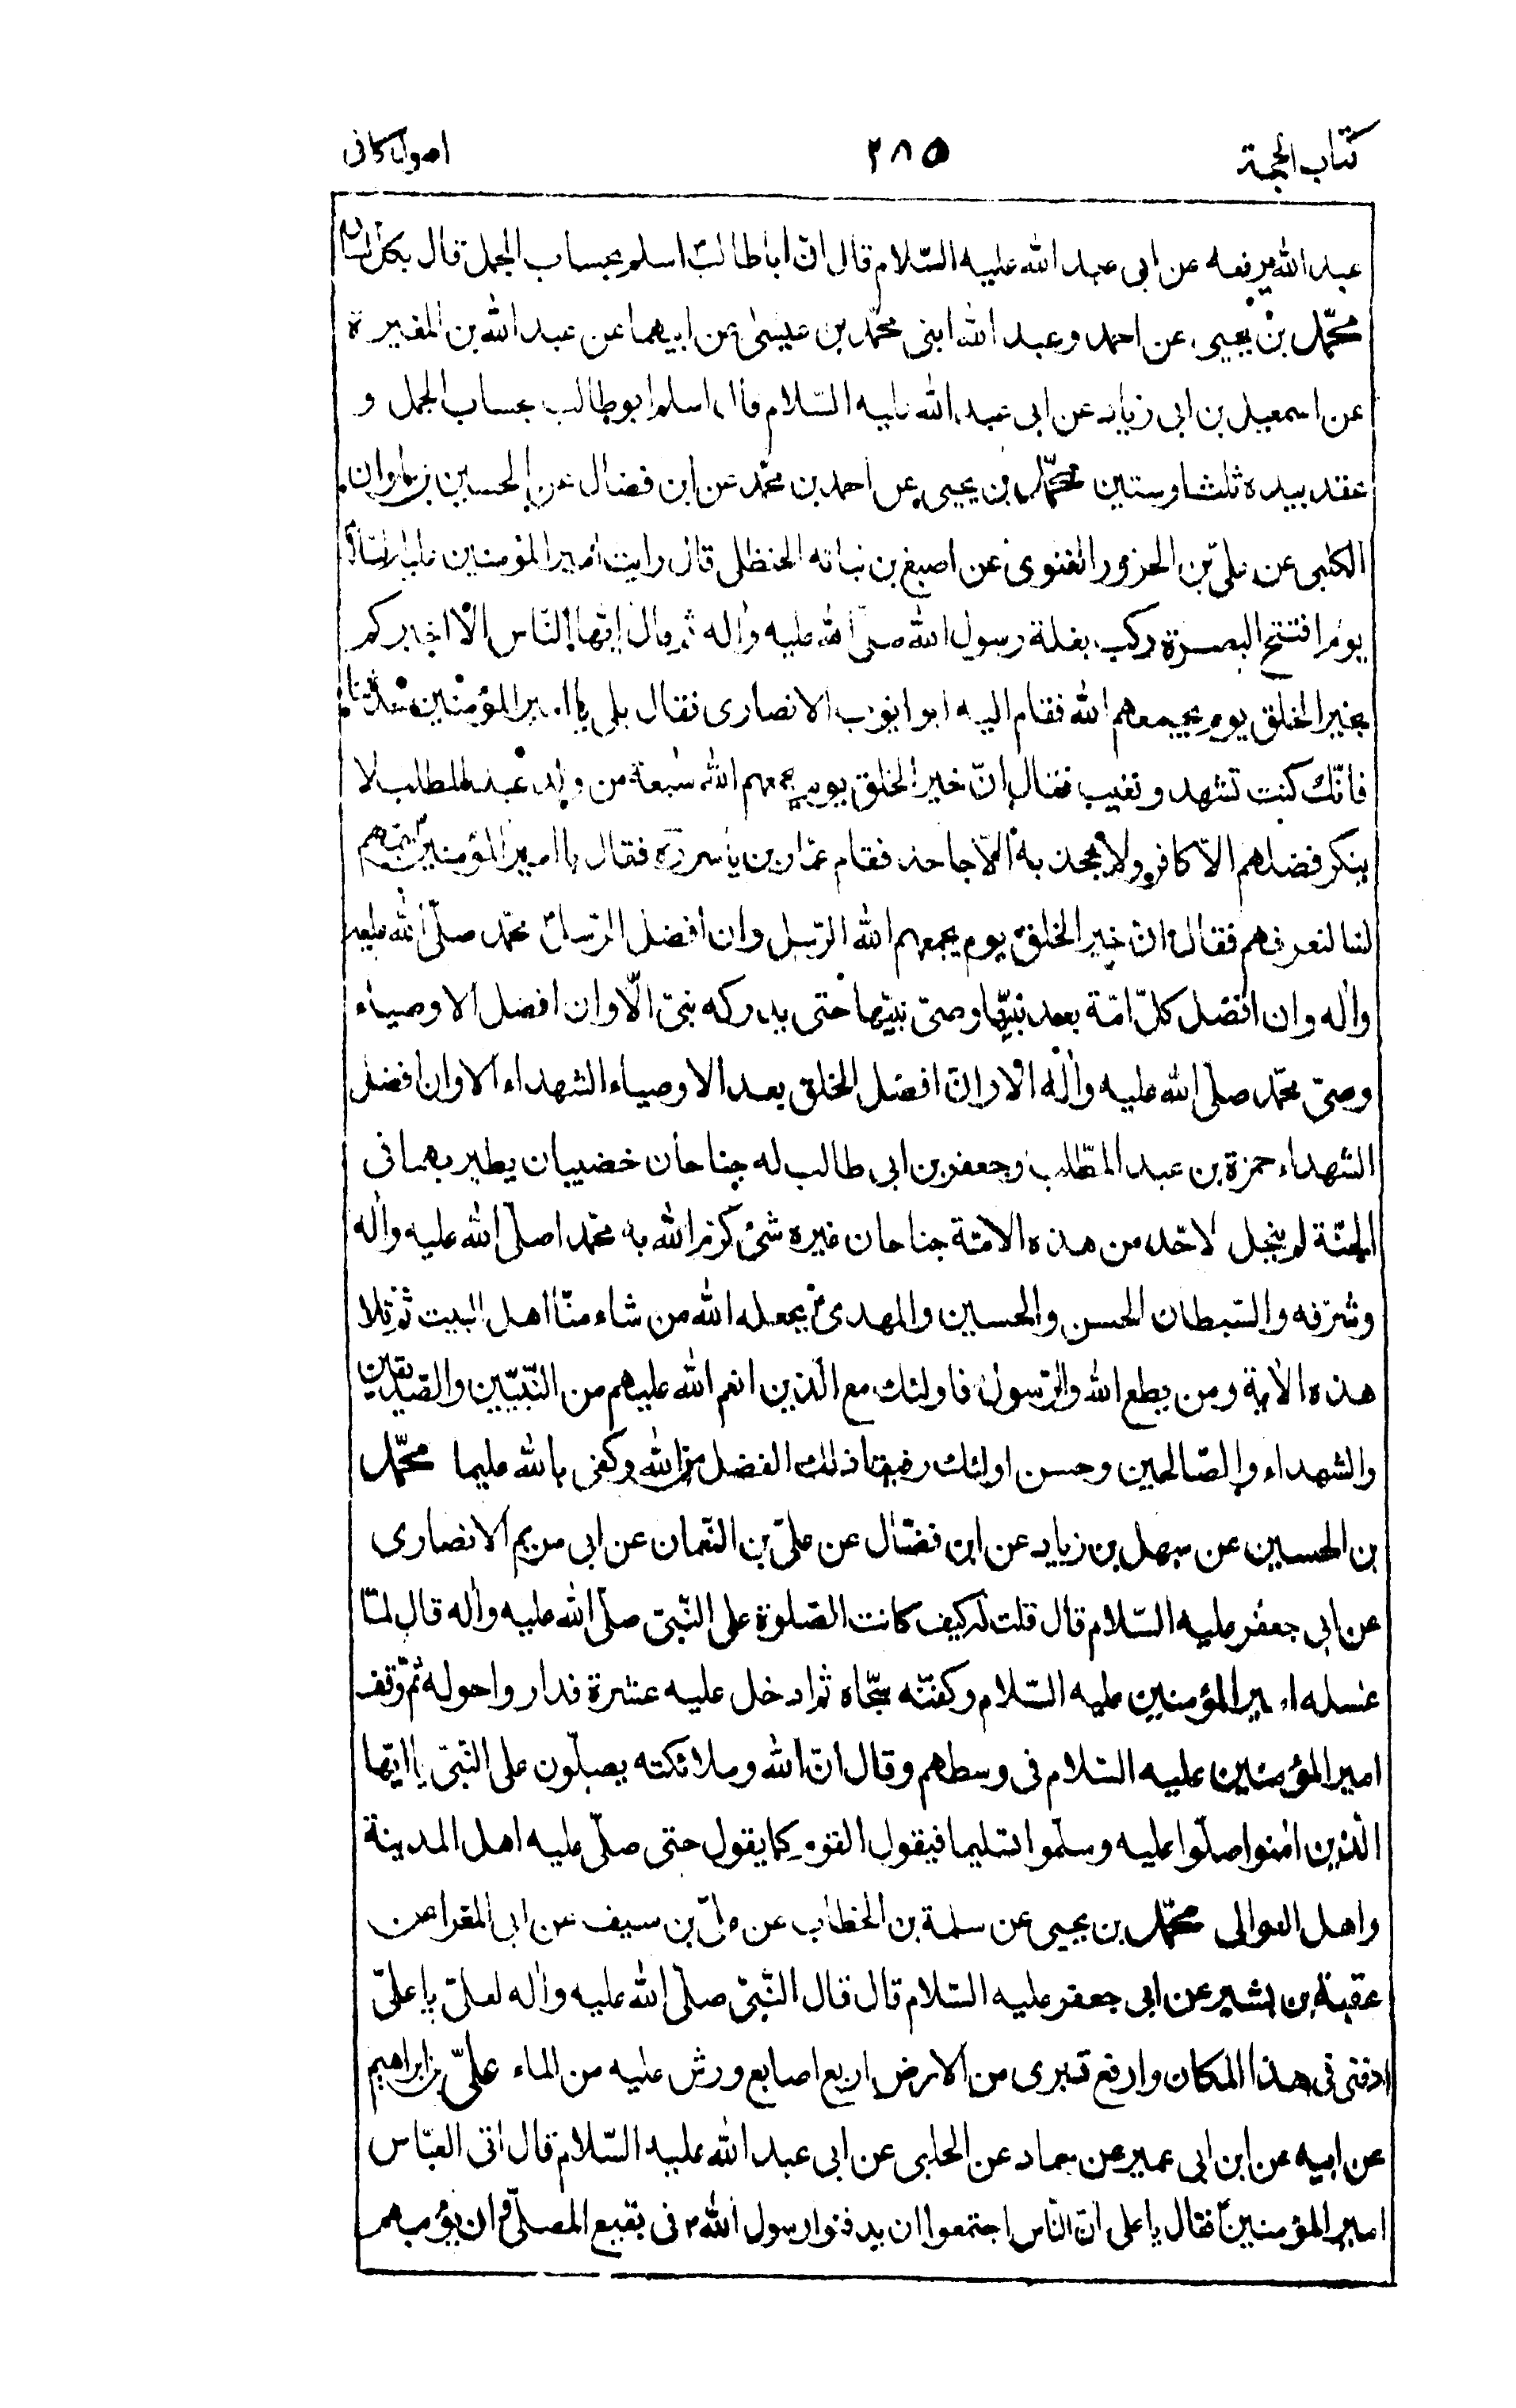 كتاب الحجة ٢٨٥ اصول كافى
عبد الله يرفعه عن ابى عبد الله عليه السّلام قال انّ ابا طالب اسلم بحساب الجمل قال بكل لسان
محمّد بن يحيى عن احمد وعبد الله ابنى محمّد بن عيسى عن ابيهما عن عبد الله بن المغيرة
عن اسمعيل بن ابى زياد عن ابى عبد الله عليه السّلام قال اسلم ابو طالب بحساب الجمل و
عقد بيده ثلثا وستين محمّد بن يحيى عن احمد بن محمّد عن ابن فضال عن الحسين بن علوان
الكلبى عن علىّ بن الحزور الغنوى عن اصبغ بن نباته الحنظلى قال رايت امير المؤمنين عليه السّلام
يوم افتتح البصرة ركب بغلة رسول الله صلّى الله عليه واله ثم قال ايّها النّاس الا اخبركم
بخير الخلق يوم يجمعهم الله فقام اليه ابو ايوب الانصارى فقال بلى يا امير المؤمنين حدّثنا
فانّك كنت تشهد ونغيب فقال انّ خير الخلق يوم يجمعهم الله سبعة من ولد عبد المطلب لا
ينكر فضلهم الّا كافر ولا يجحد به الّا جاحد فقام عمّار بن ياسر ره فقال يا امير المؤمنين سمّهم
لنا لنعرفهم فقال انّ خير الخلق يوم يجمعهم الله الرّسل وان افضل الرّسل محمّد صلّى الله عليه
واله وان افضل كلّ امّة بعد نبيّها وصىّ نبيّها حتى يدركه نبىّ الّا وان افضل الاوصياء
وصىّ محمّد صلّى الله عليه واله الا وانّ افضل الخلق بعد الاوصياء الشهداء الا وان افضل
الشهداء حمزة بن عبد المطّلب وجعفر بن ابى طالب له جناحان خضيبان يطير بهما فى
الجنّة لم ينحل لاحد من هذه الامّة جناحان غيره شئ كرّم الله به محمّدا صلّى الله عليه واله
وشرّفه والسّبطان الحسن والحسين والمهدى ع يجعله الله من شاء منّا اهل البيت ثم تلا
هذه الاية ومن يطع الله والرّسول فاولئك مع الّذين انعم الله عليهم من النّبيّين والصّدّيقين
والشهداء والصّالحين وحسن اولئك رفيقا ذلك الفضل من الله وكفى بالله عليما محمّد
بن الحسين عن سهل بن زياد عن ابن فضّال عن علىّ بن النّعمان عن ابى مريم الانصارى
عن ابى جعفر عليه السّلام قال قلت له كيف كانت الصّلوة على النّبىّ صلّى الله عليه واله قال لمّا
غسله امير المؤمنين عليه السّلام وكفنّه سجّاه ثم ادخل عليه عشرة فداروا حوله ثمّ وقف
امير المؤمنين عليه السّلام فى وسطهم وقال انّ الله وملائكته يصلّون على النّبىّ يا ايّها
الّذين امنوا صلّوا عليه وسلّموا تسليما فيقول القوم كما يقول حتى صلّى عليه اهل المدينة
واهل العوالى محمّد بن يحيى عن سلمة بن الخطاب عن علىّ بن سيف عن ابى المغرا عن
عقبة بن بشير عن ابى جعفر عليه السّلام قال قال النّبىّ صلّى الله عليه واله لعلىّ يا علىّ
ادفنى فى هذا المكان وارفع قبرى من الارض اربع اصابع ورش عليه من الماء علىّ بن ابراهيم
عن ابيه عن ابن ابى عمير عن حماد عن الحلبى عن ابى عبد الله عليه السّلام قال اتى العبّاس
امير المؤمنين ع فقال يا على انّ النّاس اجتمعوا ان يدفنوا رسول الله ص فى بقيع المصلّى وان يؤمهم